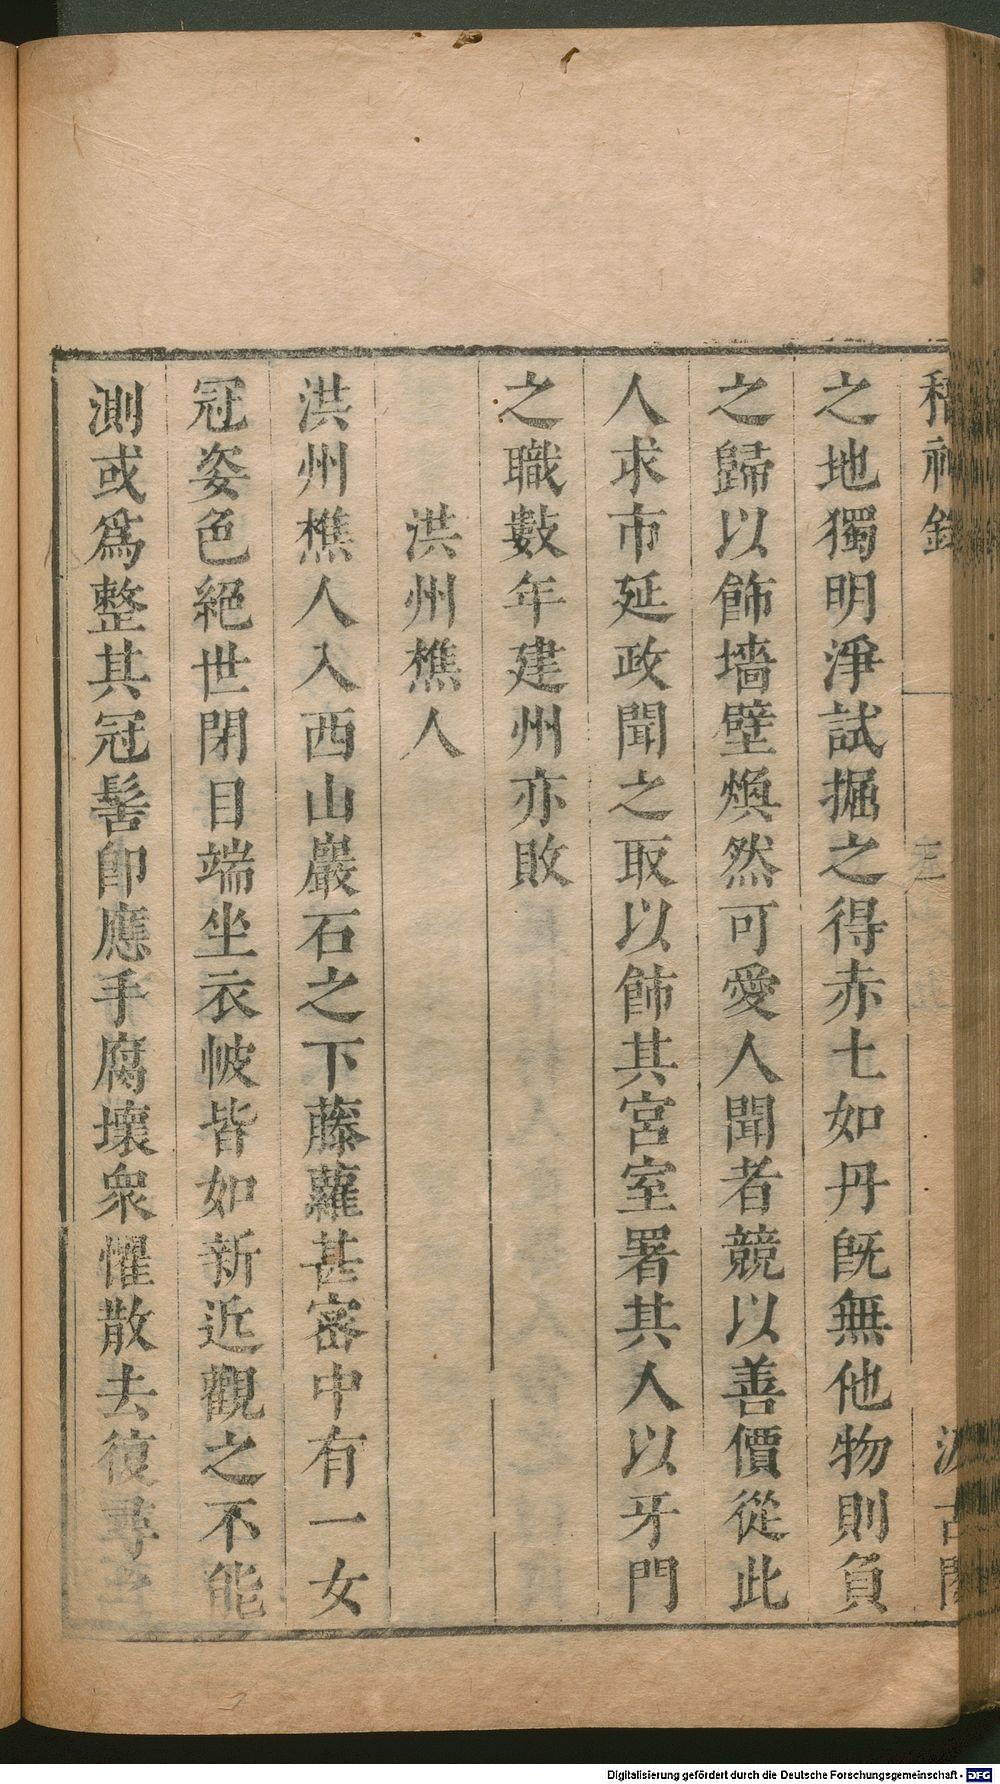 稽神錄
汲古閣
之地獨明淨試掘之得赤土如丹旣無他物則負
之歸以飾墻壁煥然可愛人聞者競以善價從此
人求市延政聞之取以飾其宮室署其人以牙門
之職數年建州亦敗
洪州樵人
洪州樵人入西山巖石之下藤蘿甚密中有一女
冠姿色絕世閉目端坐衣帔皆如新近觀之不能
測或爲整其冠髻卽應手腐壞衆懼散去復尋
Digitalisierung gefördert durch die Deutsche Forschungsgemeinschaft - DFG